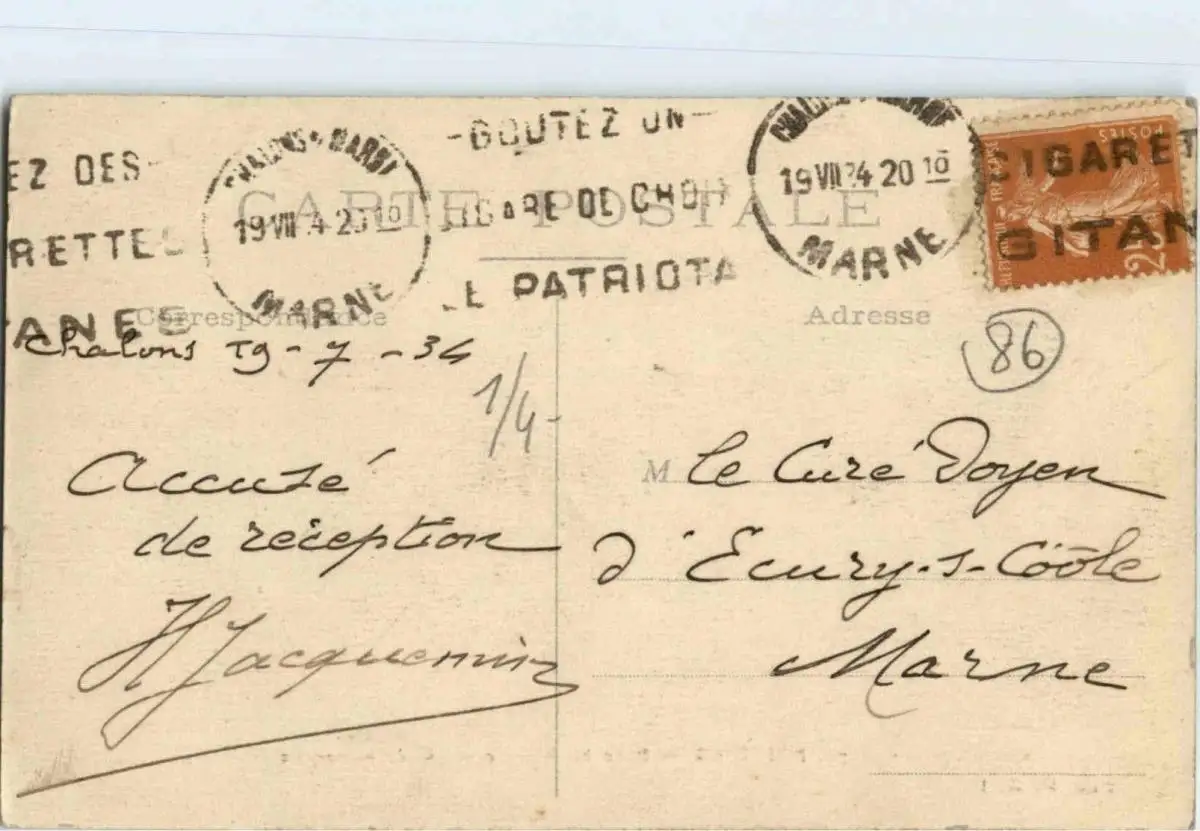 EZ DES
RETTES
ANES
CHALONS-S-MARNE
19 VII 34 20 10
MARNE
-GOUTEZ UN-
CIGARE DE CHOIX
LE PATRIOTA
CHALONS-S-MARNE
19 VII 34 20 10
MARNE
CIGARET
GITAN
POSTES
25
CARTE POSTALE
Correspondance
Adresse
Chalons 19-7-34
86
1/4-
Accusé
de réception
HJacquemin
M le Curé Doyen
d'Ecury-s-Coôle
Marne